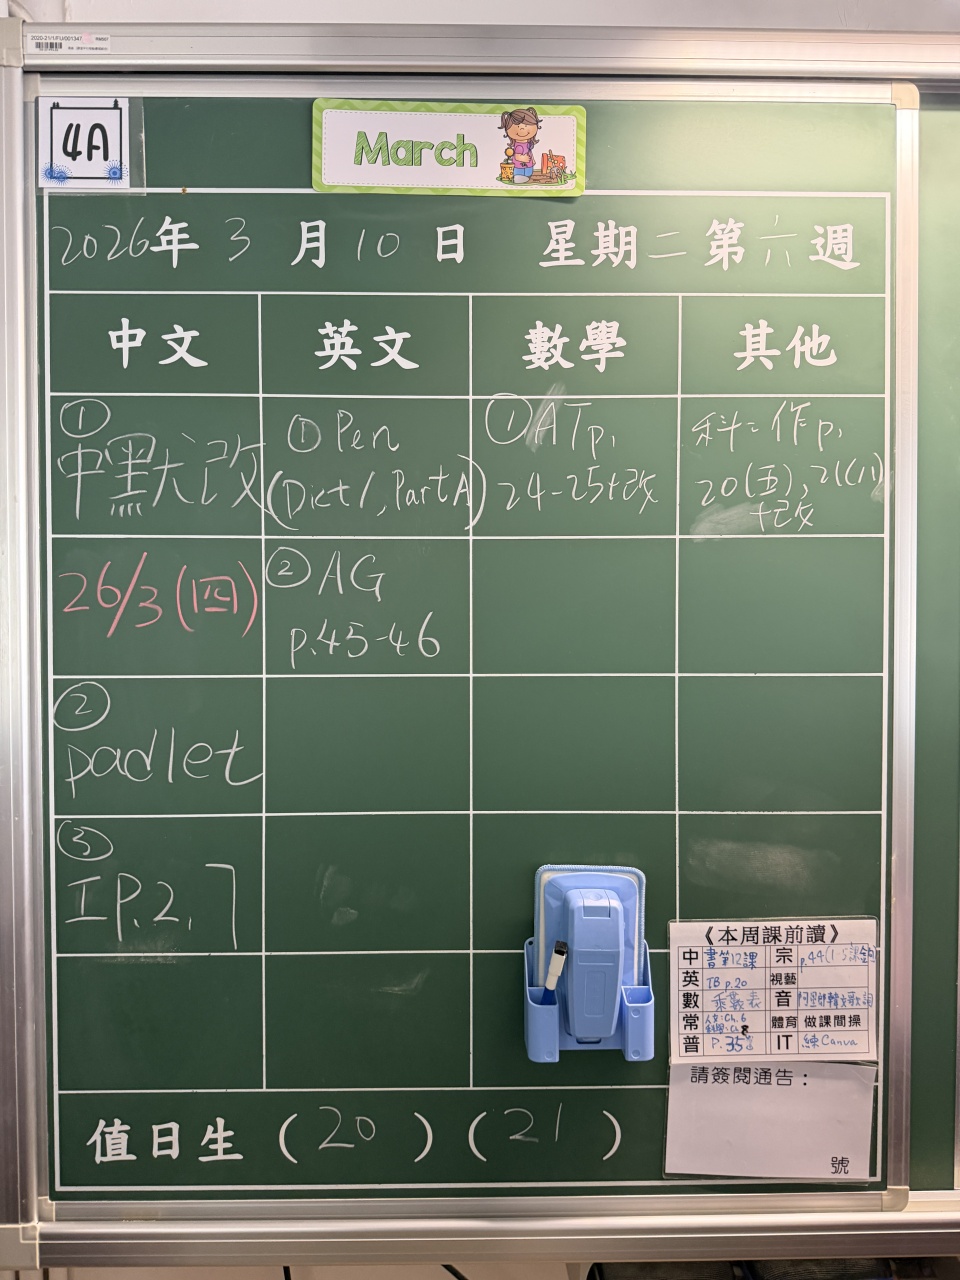 2020-21/1/FU/001347
4A
March
2026年 3 月 10 日 星期二 第六週
中文 英文 數學 其他
①
中默大改
26/3 (四)
②
padlet
③
工P.2, 7
① Pen
(Dict 1, Part A)
② AG
p.45-46
① AT p.
24-25+改
科=作p.
20(五), 21(八)
+改
《本周課前讀》
中 書第12課 宗 p.44(1-5課)
英 TB p.20 視藝
數 乘數表 音 阿里郎韓文歌詞
常 人文:Ch.6
科學:Ch.8 體育 做課間操
普 P.35 IT 練Canva
請簽閱通告：
號
值日生 (20) (21)